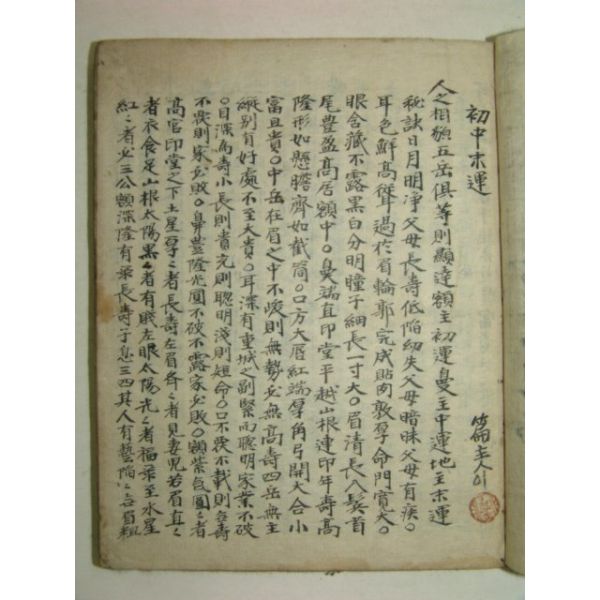 初中末運
人之相額五岳俱等則顯達額主初運鼻主中運地主末運
秘訣日月明淨父母長壽低陷幼失父母暗昧父母有疾○
耳色鮮高聳過於眉輪郭完成貼肉敦厚命門寬大○
眼含藏不露黑白分明瞳子細長一寸大○眉清長入鬂首
尾豊盈高居額中○鼻端直印堂平越山根連印年壽高
隆形如懸膽齊如截筒○口方大唇紅端厚角弓開大合小
富且貴○中岳在眉之中不峻則無勢必無高壽四岳無主
縱別有好處不至大貴○耳深有重城之副緊而聰明家業不破
○目深而壽小長則貴光則聰明淺則短命○口不畏不載則
不畏則家必敗○鼻豊隆光圓不破不露家必敗○額紫氣圓ミ者
高官印堂之下土星厚ミ者長壽左眉各ミ者見妻児若眉直ミ
者衣食足山根太陽黑ミ者有賤左眼太陽光ミ者福祿至水星
紅ミ者必三公額深隆有 長壽子息三四其人有藝陷ミ 眉粗
主人